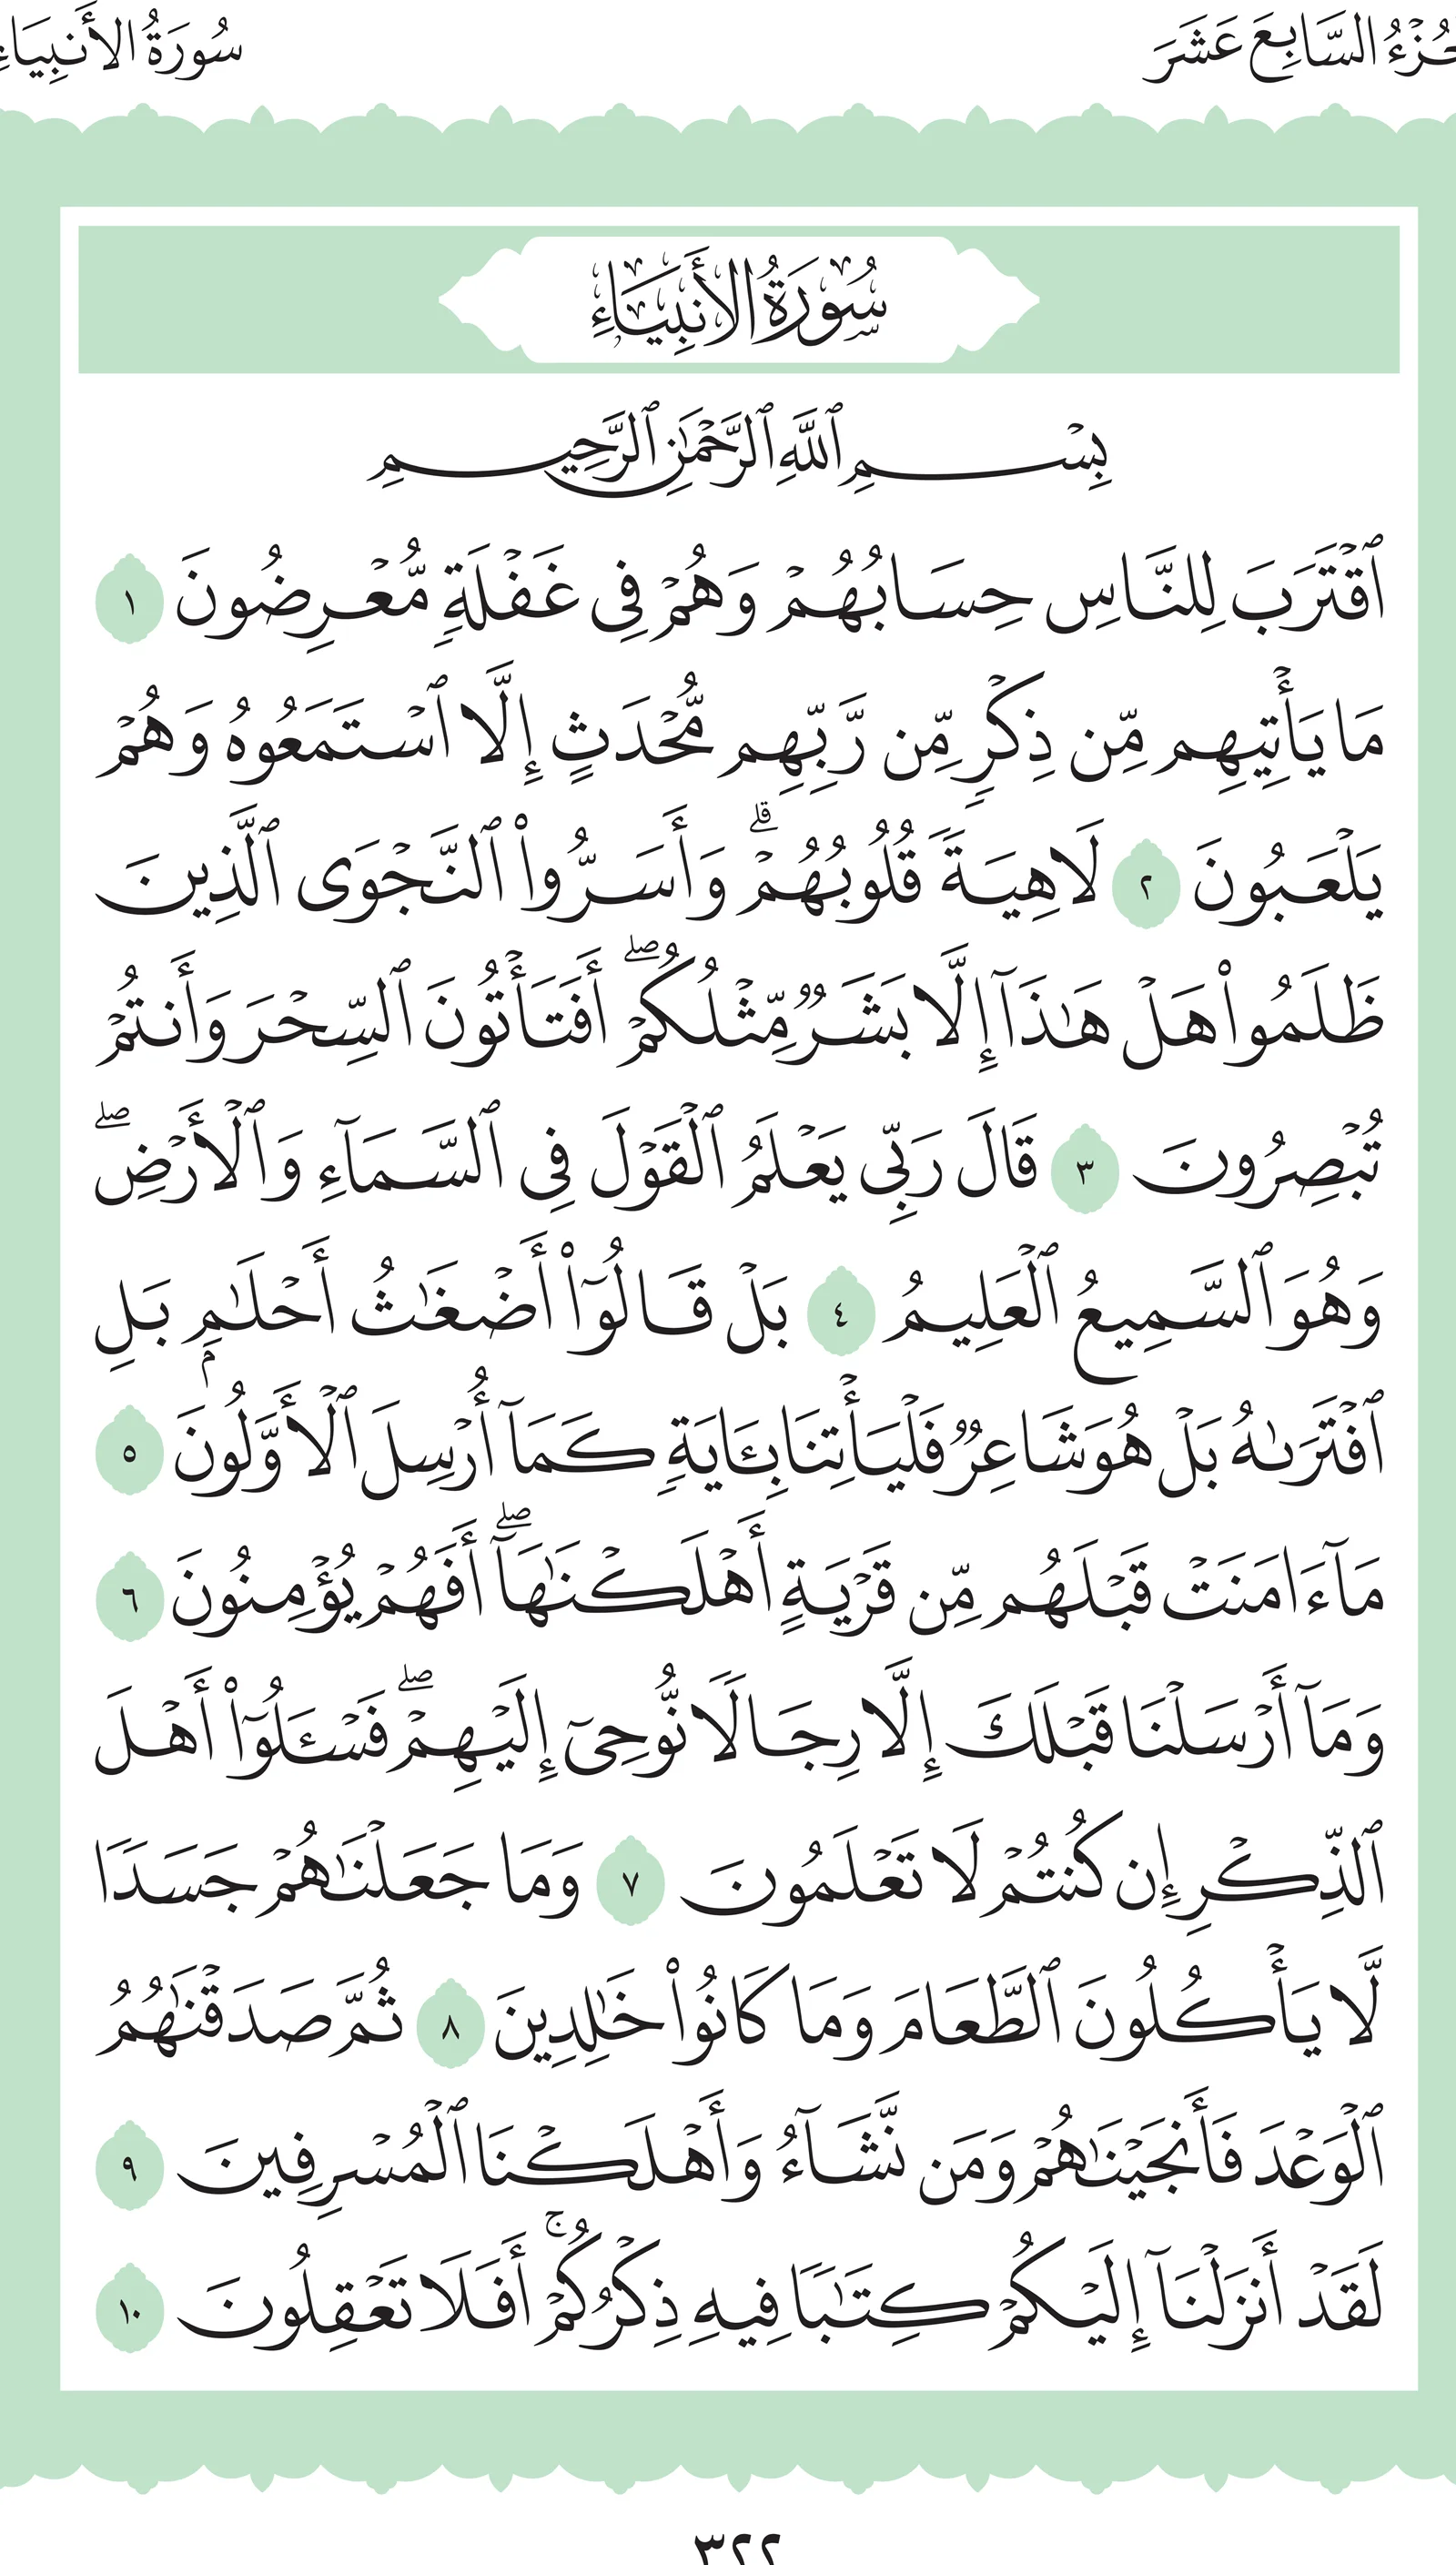 الجُزْءُ السَّابِعَ عَشَرَ
سُورَةُ الأَنبِيَاءِ
سُورَةُ الأَنبِيَاءِ
بِسْمِ ٱللَّهِ ٱلرَّحْمَٰنِ ٱلرَّحِيمِ
ٱقْتَرَبَ لِلنَّاسِ حِسَابُهُمْ وَهُمْ فِى غَفْلَةٍ مُّعْرِضُونَ ١
مَا يَأْتِيهِم مِّن ذِكْرٍ مِّن رَّبِّهِم مُّحْدَثٍ إِلَّا ٱسْتَمَعُوهُ وَهُمْ
يَلْعَبُونَ ٢ لَاهِيَةً قُلُوبُهُمْ ۗ وَأَسَرُّوا۟ ٱلنَّجْوَى ٱلَّذِينَ
ظَلَمُوا۟ هَلْ هَٰذَآ إِلَّا بَشَرٌ مِّثْلُكُمْ ۖ أَفَتَأْتُونَ ٱلسِّحْرَ وَأَنتُمْ
تُبْصِرُونَ ٣ قَالَ رَبِّى يَعْلَمُ ٱلْقَوْلَ فِى ٱلسَّمَآءِ وَٱلْأَرْضِ ۖ
وَهُوَ ٱلسَّمِيعُ ٱلْعَلِيمُ ٤ بَلْ قَالُوٓا۟ أَضْغَٰثُ أَحْلَٰمٍۭ بَلِ
ٱفْتَرَىٰهُ بَلْ هُوَ شَاعِرٌ فَلْيَأْتِنَا بِـَٔايَةٍ كَمَآ أُرْسِلَ ٱلْأَوَّلُونَ ٥
مَآ ءَامَنَتْ قَبْلَهُم مِّن قَرْيَةٍ أَهْلَكْنَٰهَآ ۖ أَفَهُمْ يُؤْمِنُونَ ٦
وَمَآ أَرْسَلْنَا قَبْلَكَ إِلَّا رِجَالًا نُّوحِىٓ إِلَيْهِمْ ۖ فَسْـَٔلُوٓا۟ أَهْلَ
ٱلذِّكْرِ إِن كُنتُمْ لَا تَعْلَمُونَ ٧ وَمَا جَعَلْنَٰهُمْ جَسَدًا
لَّا يَأْكُلُونَ ٱلطَّعَامَ وَمَا كَانُوا۟ خَٰلِدِينَ ٨ ثُمَّ صَدَقْنَٰهُمُ
ٱلْوَعْدَ فَأَنجَيْنَٰهُمْ وَمَن نَّشَآءُ وَأَهْلَكْنَا ٱلْمُسْرِفِينَ ٩
لَقَدْ أَنزَلْنَآ إِلَيْكُمْ كِتَٰبًا فِيهِ ذِكْرُكُمْ ۚ أَفَلَا تَعْقِلُونَ ١٠
٣٢٢